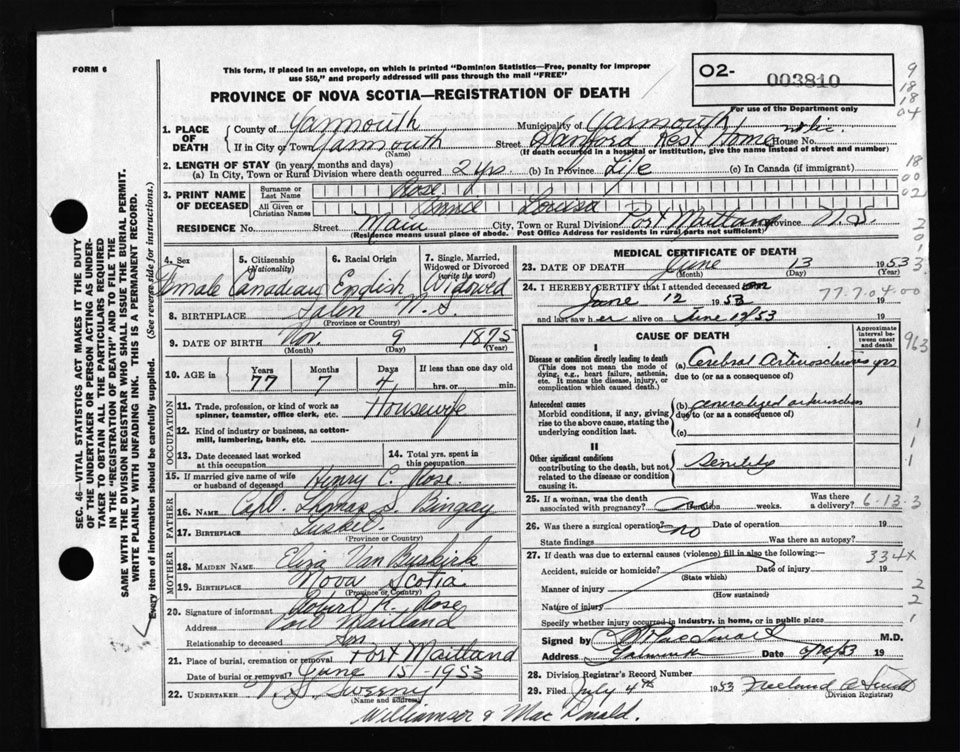 FORM 6
This form, if placed in an envelope, on which is printed "Dominion Statistics—Free, penalty for improper
use $50," and properly addressed will pass through the mail "FREE"
02- 003810
PROVINCE OF NOVA SCOTIA—REGISTRATION OF DEATH
For use of the Department only
1. PLACE OF DEATH
County of Yarmouth Municipality of Yarmouth
or
If in City or Town Yarmouth Street Rest Home House No.
(Name) (If death occurred in a hospital or institution, give the name instead of street and number)
2. LENGTH OF STAY (in years, months and days)
(a) In City, Town or Rural Division where death occurred 2 yrs. (b) In Province Life (c) In Canada (if immigrant)
3. PRINT NAME OF DECEASED
Surname or Last Name Rose
All Given or Christian Names Louisa
RESIDENCE No. Street Main City, Town or Rural Division Port Maitland Province N.S.
(Residence means usual place of abode. Post Office Address for residents in rural parts not sufficient)
4. Sex Female
5. Citizenship (Nationality) Canadian
6. Racial Origin English
7. Single, Married, Widowed or Divorced (write the word) Widowed
8. BIRTHPLACE Salem N.S.
(Province or Country)
9. DATE OF BIRTH Nov. 9 1875
(Month) (Day) (Year)
10. AGE in Years 77 Months 7 Days 4 If less than one day
hrs. or min.
OCCUPATION
11. Trade, profession, or kind of work as spinner, teamster, office clerk, etc. Housewife
12. Kind of industry or business, as cotton-mill, lumbering, bank, etc.
13. Date deceased last worked at this occupation
14. Total yrs. spent in this occupation
15. If married give name of wife or husband of deceased Henry C. Rose.
FATHER
16. Name Capt. Thomas S. Bingay
17. Birthplace Tusket
(Province or Country)
MOTHER
18. MAIDEN NAME Eliza Van Buskirk
19. BIRTHPLACE Nova Scotia
(Province or Country)
20. Signature of informant Robert K. Rose
Address Port Maitland
Relationship to deceased Son
21. Place of burial, cremation or removal Port Maitland
Date of burial or removal? June 15, 1953
22. UNDERTAKER V. S. Sweeny
(Name and Address)
Williamson & MacDonald.
MEDICAL CERTIFICATE OF DEATH
23. DATE OF DEATH June 13 1953
(Month) (Day) (Year)
24. I HEREBY CERTIFY that I attended deceased
June 12 1953 19
and last saw her alive on June 12/53
CAUSE OF DEATH
Approximate interval between onset and death
I
Disease or condition directly leading to death
(This does not mean the mode of dying, e.g., heart failure, asthenia, etc. It means the disease, injury, or complication which caused death.)
(a) Cerebral arteriosclerosis yrs
due to (or as a consequence of)
Antecedent causes
Morbid conditions, if any, giving rise to the above cause, stating the underlying condition last.
(b) generalized arteriosclerosis
due to (or as a consequence of)
(c)
II
Other significant conditions
contributing to the death, but not related to the disease or condition causing it
Senility
25. If a woman, was the death associated with pregnancy? Duration weeks. Was there a delivery?
6-13-3
26. Was there a surgical operation? no Date of operation 19
State findings Was there an autopsy?
27. If death was due to external causes (violence) fill in also the following:—
Accident, suicide or homicide? Date of injury 19
(State which)
Manner of injury
(How sustained)
Nature of injury
Specify whether injury occurred in industry, in home, or in public place
Signed by M.D.
Address Yarmouth Date 19
28. Division Registrar's Record Number
29. Filed July 4th 1953
(Division Registrar)
334X
77.7.04.00
963
SEC. 46—VITAL STATISTICS ACT MAKES IT THE DUTY
OF THE UNDERTAKER OR PERSON ACTING AS UNDERTAKER TO OBTAIN ALL THE PARTICULARS REQUIRED
IN THE "REGISTRATION OF DEATH" AND TO FILE THE
SAME WITH THE DIVISION REGISTRAR WHO SHALL ISSUE THE BURIAL PERMIT.
WRITE PLAINLY WITH UNFADING INK. THIS IS A PERMANENT RECORD.
Every item of information should be carefully supplied. (See reverse side for instructions.)